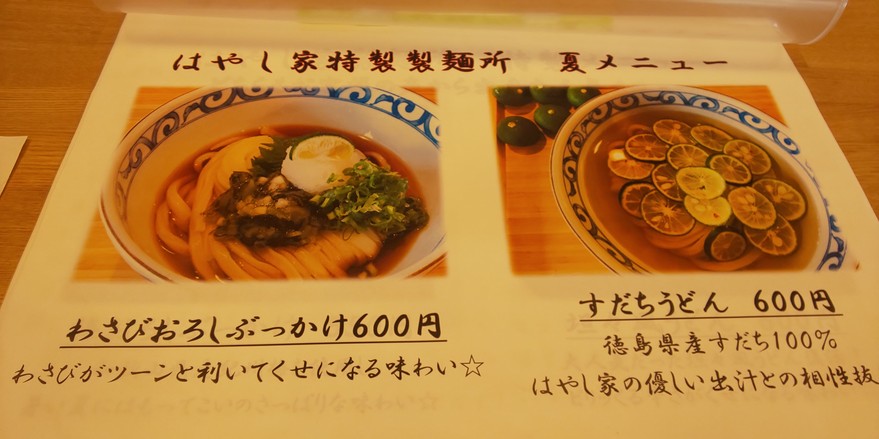 はやし家特製製麺所 夏メニュー
わさびおろしぶっかけ600円
わさびがツーンと利いてくせになる味わい☆
すだちうどん 600円
徳島県産すだち100%
はやし家の優しい出汁との相性抜